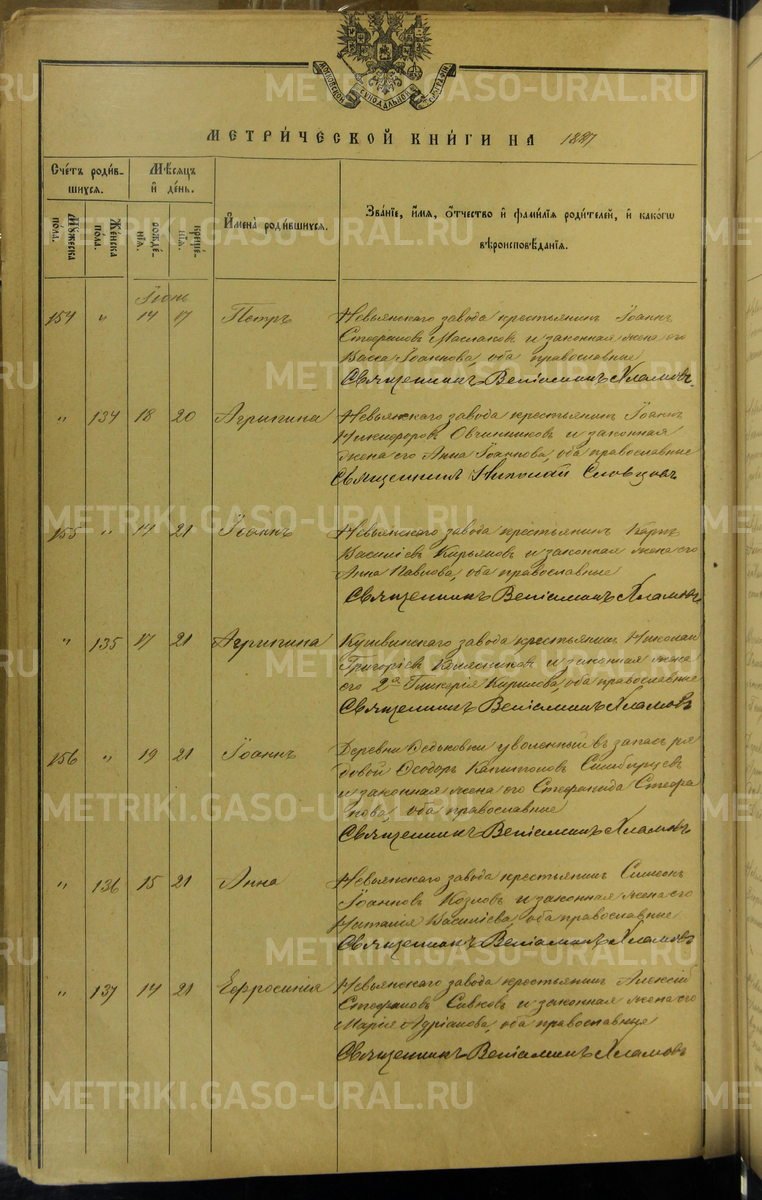 МОСКОВСКОЙ СѴНОДАЛЬНОЙ
МЕТРИ́ЧЕСКОЙ КНИ́ГИ НА 1887
Сче́тъ роди́в-
шихся.
Мѣ́сяцъ
и҆ де́нь.
И҆мена̀ роди́вшихся.
Зва́нїе, и҆́мя, ѻ҆́тчество и҆ фами́лїя роди́телей, и҆ како́гѡ
вѣроисповѣ́данїя.
Мꙋ́жеска по́ла.
Же́нска по́ла.
рожде́нїя.
креще́нїя.
Іюнь
154 " 14 17 Петръ
Невьянскаго завода крестьянинъ Іоаннъ
Стефановъ Маслаковъ и законная жена его
Васса Іоаннова, оба православные
Священникъ Веніаминъ Хламовъ
" 134 18 20 Агрипина
Невьянскаго завода крестьянинъ Іоаннъ
Никифоровъ Овчинниковъ и законная
жена его Анна Іоаннова, оба православные
Священникъ Николай Словцовъ
155 " 14 21 Іоаннъ
Невьянскаго завода крестьянинъ Карпъ
Василіевъ Кирьяновъ и законная жена его
Анна Павлова, оба православные
Священникъ Веніаминъ Хламовъ
" 135 17 21 Агрипина
Кушвинскаго завода крестьянинъ Николай
Григоріевъ и законная жена
его 2а Гликерія Кирилова, оба православные
Священникъ Веніаминъ Хламовъ
156 " 19 21 Іоаннъ
Деревни Федьковки уволенный въ запасъ ря
довой Феодоръ Капитоновъ Симбирцевъ
и законная жена его Стефанида Стефа
нова, оба православные
Священникъ Веніаминъ Хламовъ
" 136 15 21 Анна
Невьянскаго завода крестьянинъ Симеонъ
Іоанновъ Козловъ и законная жена его
Наталія Василіева, оба православные
Священникъ Веніаминъ Хламовъ
" 137 14 21 Ефросинія
Невьянскаго завода крестьянинъ Алексій
Стефановъ Савковъ и законная жена его
Марія Адріанова, оба православные
Священникъ Веніаминъ Хламовъ
METRIKI.GASO-URAL.RU